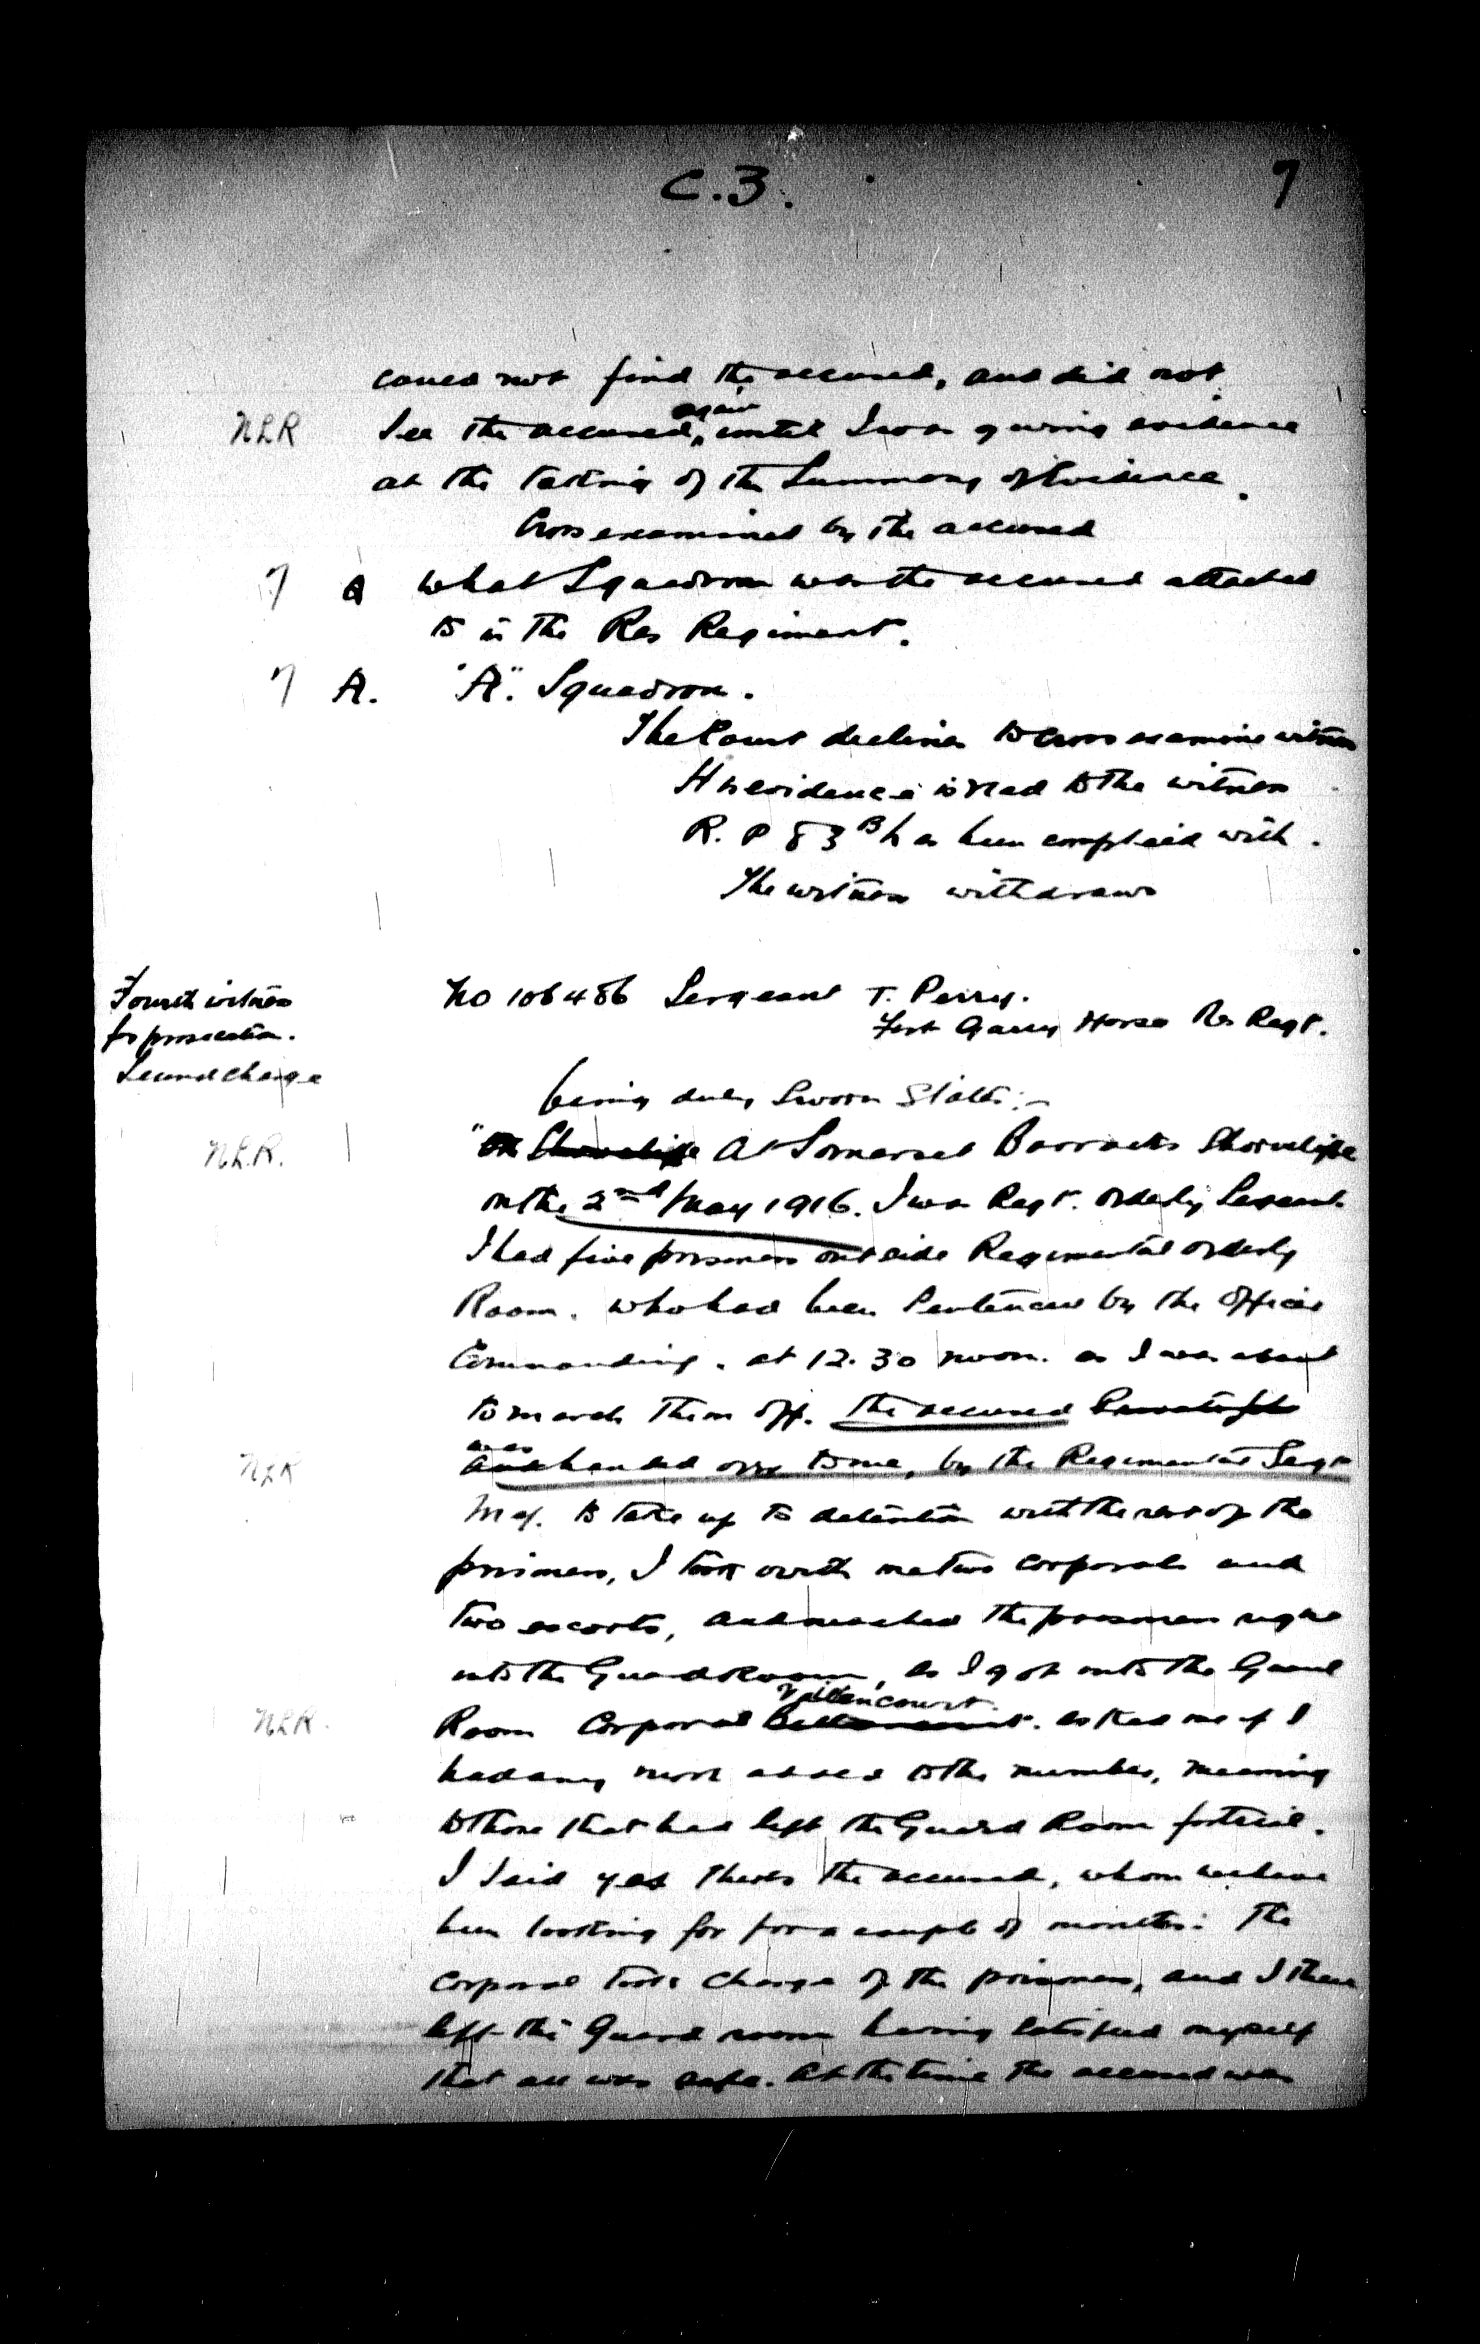 C.3. 7
could not find the accused, and did not
NLR see the accused, again until I was giving evidence
at the taking of the Summary of Evidence.
Cross examined by the accused
7 Q What Squadron was the accused attached
to in the Res Regiment.
7 A. "A". Squadron.
The Court declines to cross examine witness
His evidence is read to the witness
R. P 83 B has been complied with.
The witness withdraws
Fourth witness
for prosecution.
Second charge
No 106486 Sergeant T. Perry.
Fort Garry Horse Res Regt.
being duly sworn states:-
NLR. "On Shorncliffe At Somerset Barracks Shorncliffe
on the 2nd May 1916. I was Regt. Orderly Sergeant.
I had five prisoners outside Regimental Orderly
Room. who had been sentenced by the Officer
Commanding. at 12.30 noon. as I was about
to march them off. the accused Private
NLR was and handed over to me, by the Regimental Sergt
Maj. to take up to detention with the rest of the
prisoners, I took with me two corporals and
two escorts, and marched the prisoners right
into the Guard Room, as I got into the Guard
NLR. Room Corporal asked me if I
had any more added to the number, meaning
to those that had left the Guard Room for trial.
I said yes theres the accused, whom we have
been looking for for a couple of months: The
Corporal took charge of the prisoners, and I then
left the Guard room having satisfied myself
that all was safe. At the time the accused was